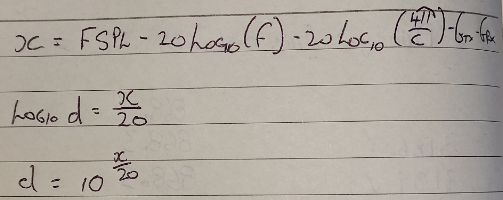 x = FSPL - 20 Log₁₀ (f) - 20 Log₁₀ (4π/c) - G_Tx - G_Rx
Log₁₀ d = x/20
d = 10^(x/20)